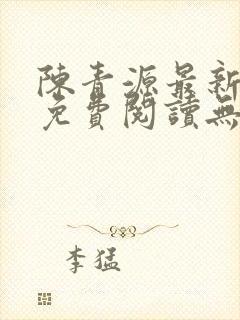 陳青源最新
免費閱讀無
李猛